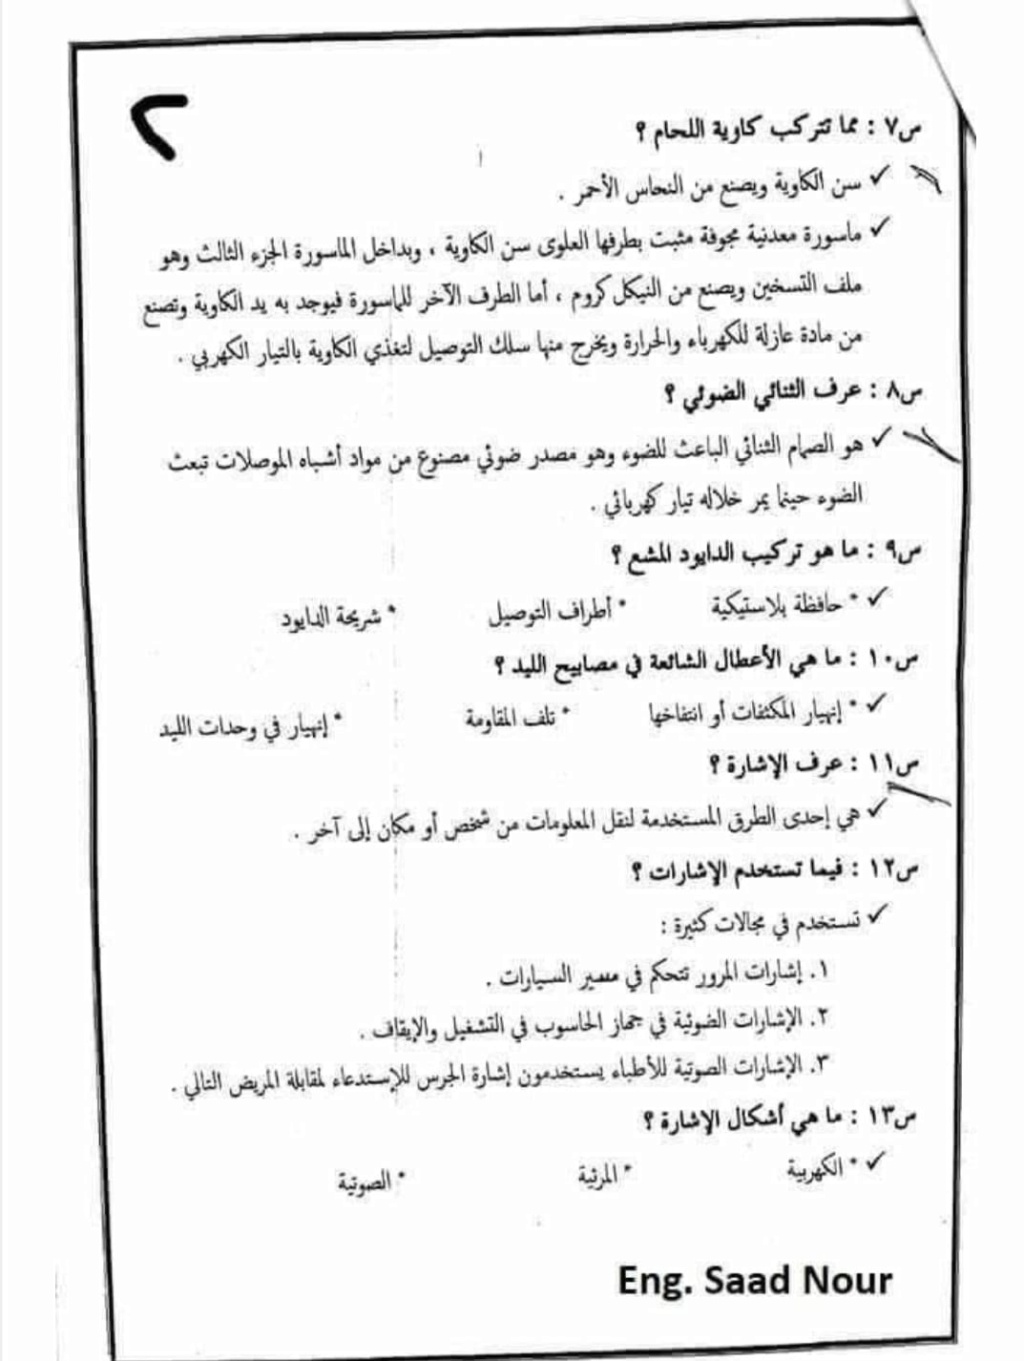 ٢
س٧ : مما تتركب كاوية اللحام ؟
✓ سن الكاوية ويصنع من النحاس الأحمر .
✓ ماسورة معدنية مجوفة مثبت بطرفها العلوى سن الكاوية ، وبداخل الماسورة الجزء الثالث وهو
ملف التسخين ويصنع من النيكل كروم ، أما الطرف الآخر للماسورة فيوجد به يد الكاوية وتصنع
من مادة عازلة للكهرباء والحرارة ويخرج منها سلك التوصيل لتغذي الكاوية بالتيار الكهربي .
س٨ : عرف الثنائي الضوئي ؟
✓ هو الصمام الثنائي الباعث للضوء وهو مصدر ضوئي مصنوع من مواد أشباه الموصلات تبعث
الضوء حينما يمر خلاله تيار كهربائي .
س٩ : ما هو تركيب الدايود المشع ؟
✓ * حافظة بلاستيكية * أطراف التوصيل * شريحة الدايود
س١٠ : ما هي الأعطال الشائعة في مصابيح الليد ؟
✓ * إنهيار المكثفات أو انتفاخها * تلف المقاومة * إنهيار في وحدات الليد
س١١ : عرف الإشارة ؟
✓ هي إحدى الطرق المستخدمة لنقل المعلومات من شخص أو مكان إلى آخر .
س١٢ : فيما تستخدم الإشارات ؟
✓ تستخدم في مجالات كثيرة :
١. إشارات المرور تتحكم في مسير السيارات .
٢. الإشارات الضوئية في جهاز الحاسوب في التشغيل والإيقاف .
٣. الإشارات الصوتية للأطباء يستخدمون إشارة الجرس للإستدعاء لمقابلة المريض التالي .
س١٣ : ما هي أشكال الإشارة ؟
✓ * الكهربية * المرئية * الصوتية
Eng. Saad Nour